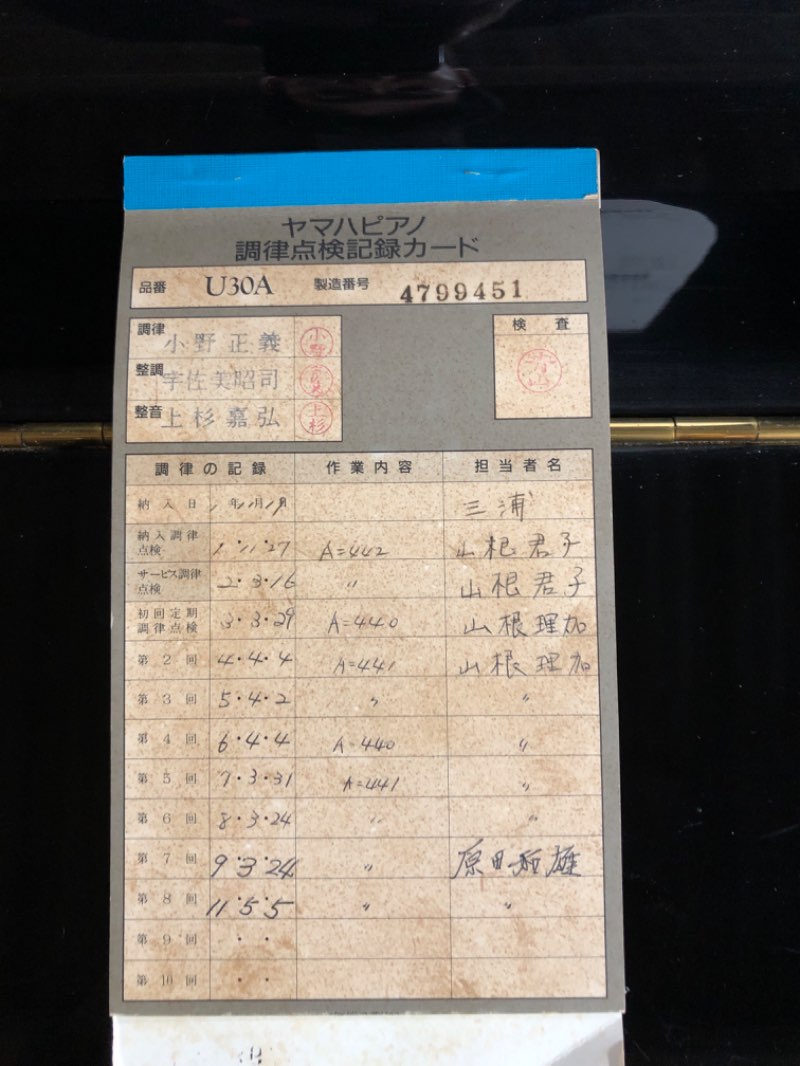 ヤマハピアノ
調律点検記録カード
品番 U30A 製造番号 4799451
調律 小野正義 小野
検査
整調 宇佐美昭司
整音 上杉嘉弘 上杉
調律の記録 作業内容 担当者名
納入日 1年11月19日 三浦
納入調律点検 1・11・27 A=442 山根君子
サービス調律点検 2・3・16 〃 山根君子
初回定期調律点検 3・3・29 A=440 山根理加
第2回 4・4・4 A=441 山根理加
第3回 5・4・2 〃 〃
第4回 6・4・4 A=440 〃
第5回 7・3・31 A=441 〃
第6回 8・3・24 〃 〃
第7回 9・3・24 〃 原田
第8回 11・5・5 〃 〃
第9回 ・・
第10回 ・・